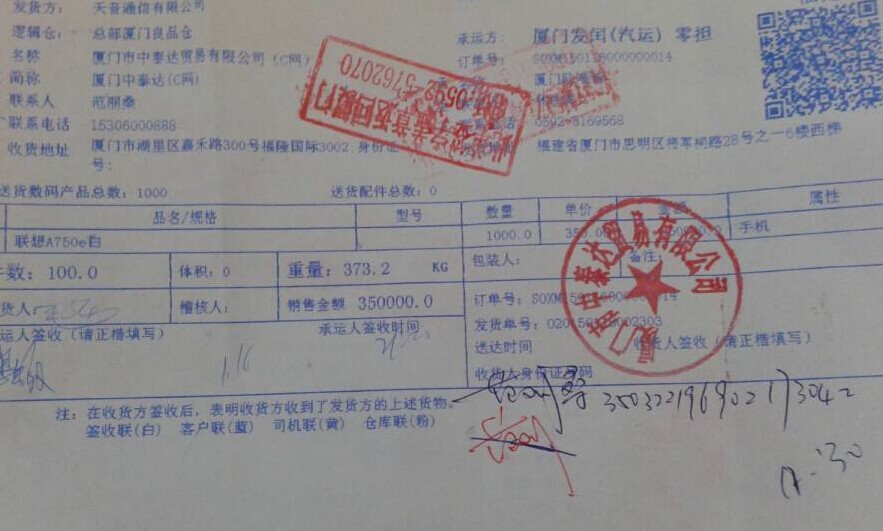 发货方： 天音通信有限公司
逻辑仓： 总部厦门良品仓
承运方： 厦门发闰(汽运) 零担
名称 厦门市中泰达贸易有限公司(C网)
订单号：
简称 厦门中泰达(C网)
联系人
联系电话 15306000888
0592-5169568
收货地址 厦门市湖里区嘉禾路300号福隆国际3002,身份证
号:
福建省厦门市思明区将军祠路28号之一6楼西梯
0592-5762070
送货数码产品总数: 1000 送货配件总数: 0
品名/规格 型号 数量 单价 金额 属性
联想A750e白 1000.0 手机
件数: 100.0 体积: 0 重量: 373.2 KG 包装人: 备注:
稽核人: 销售金额 350000.0 订单号:
发货单号:
承运人签收(请正楷填写) 承运人签收时间 送达时间 收货人签收(请正楷填写)
1.16
收货人身份证号码
厦门市中泰达贸易有限公司
注: 在收货方签收后,表明收货方收到了发货方的上述货物。
签收联(白) 客户联(蓝) 司机联(黄) 仓库联(粉)
350322196902173042